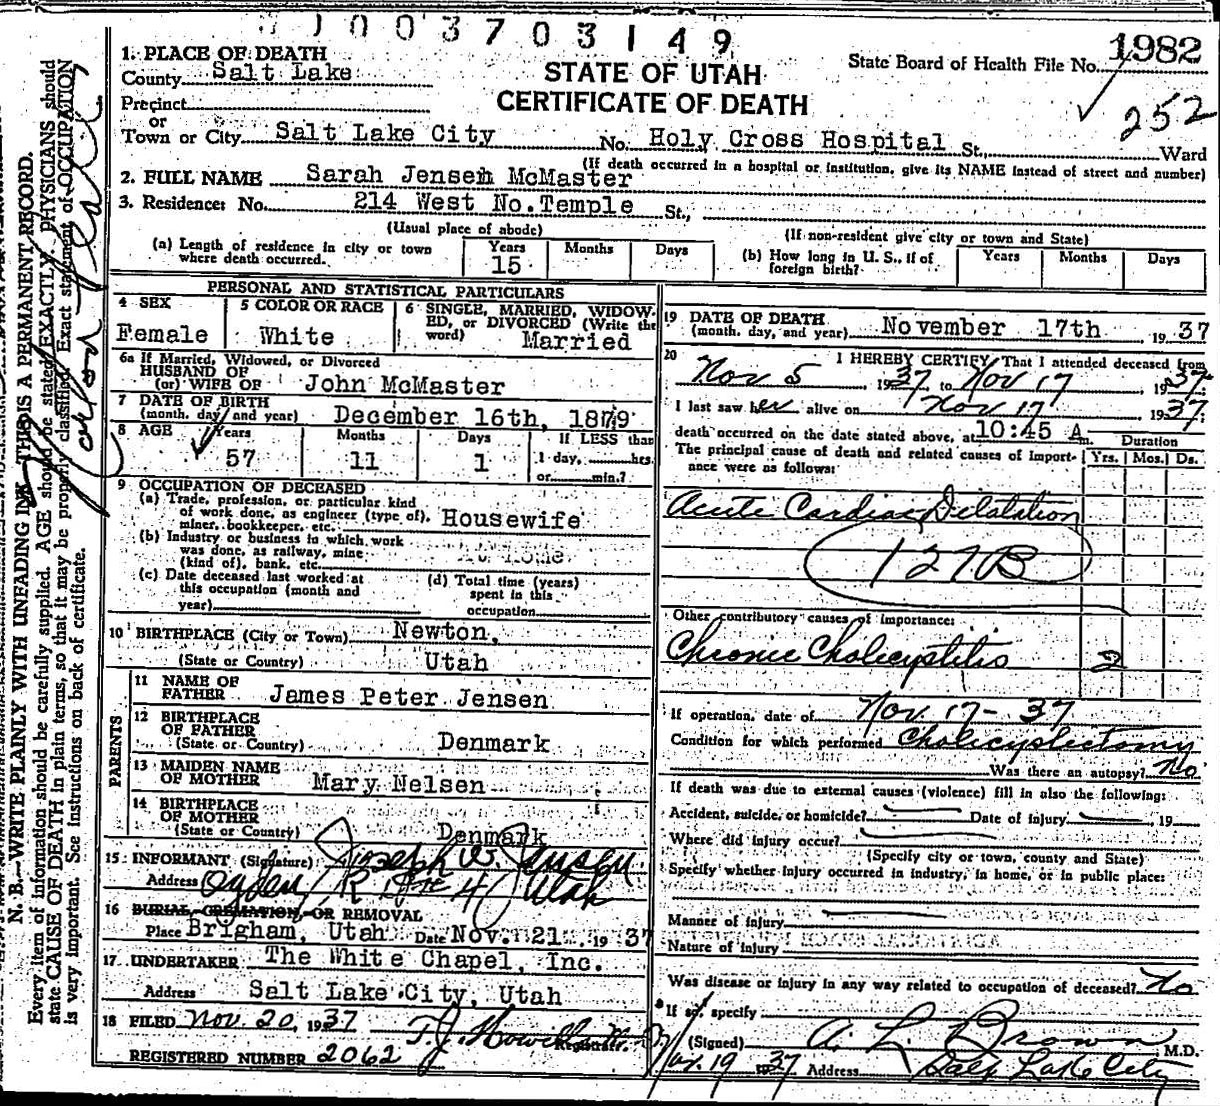 1003703149
1982
State Board of Health File No.
252
STATE OF UTAH
CERTIFICATE OF DEATH
1. PLACE OF DEATH
County Salt Lake
Precinct
or
Town or City Salt Lake City No. Holy Cross Hospital St., Ward
(If death occurred in a hospital or institution, give its NAME instead of street and number)
2. FULL NAME Sarah Jensen McMaster
3. Residence: No. 214 West No. Temple St.,
(Usual place of abode) (If non-resident give city or town and State)
(a) Length of residence in city or town where death occurred. Years 15 Months Days
(b) How long in U. S., if of foreign birth? Years Months Days
PERSONAL AND STATISTICAL PARTICULARS
4 SEX Female
5 COLOR OR RACE White
6 SINGLE, MARRIED, WIDOWED, or DIVORCED (Write the word) Married
6a If Married, Widowed, or Divorced
HUSBAND OF
(or) WIFE OF John McMaster
7 DATE OF BIRTH
(month, day, and year) December 16th, 1879
8 AGE Years 57 Months 11 Days 1 If LESS than
1 day, hrs.
or min.?
9 OCCUPATION OF DECEASED
(a) Trade, profession, or particular kind
of work done, as engineer (type of),
miner, bookkeeper, etc. Housewife
(b) Industry or business in which work
was done, as railway, mine
(kind of), bank, etc. At Home
(c) Date deceased last worked at
this occupation (month and
year)
(d) Total time (years)
spent in this
occupation
10 BIRTHPLACE (City or Town) Newton,
(State or Country) Utah
PARENTS
11 NAME OF
FATHER James Peter Jensen
12 BIRTHPLACE
OF FATHER
(State or Country) Denmark
13 MAIDEN NAME
OF MOTHER Mary Nelsen
14 BIRTHPLACE
OF MOTHER
(State or Country) Denmark
15 INFORMANT (Signature) Joseph W. Jensen
Address Ogden, R 4 Utah
16 BURIAL, CREMATION, OR REMOVAL
Place Brigham, Utah Date Nov. 21 1937
17 UNDERTAKER The White Chapel, Inc.
Address Salt Lake City, Utah
18 FILED Nov. 20, 1937 T.J. Howells M.D.
Registrar.
REGISTERED NUMBER 2062
19 DATE OF DEATH
(month, day, and year) November 17th, 1937
20 I HEREBY CERTIFY, That I attended deceased from
Nov 5 1937, to Nov 17 1937
I last saw her alive on Nov 17 1937
death occurred on the date stated above, at 10:45 A m.
The principal cause of death and related causes of importance were as follows:
Duration
Yrs. Mos. Ds.
Acute Cardiac Dilatation
127B
Other contributory causes of importance:
Chronic Cholecystitis 2
If operation, date of Nov. 17 - 37
Condition for which performed Cholicystectomy
Was there an autopsy? No
If death was due to external causes (violence) fill in also the following:
Accident, suicide, or homicide? Date of injury 19
Where did injury occur?
(Specify city or town, county and State)
Specify whether injury occurred in industry, in home, or in public place:
Manner of injury
Nature of injury
Was disease or injury in any way related to occupation of deceased? No
If so, specify
(Signed) A. L. Brown M.D.
Nov. 19 1937 Address Salt Lake City
N. B.—WRITE PLAINLY WITH UNFADING INK—THIS IS A PERMANENT RECORD.
Every item of information should be carefully supplied. AGE should be stated EXACTLY. PHYSICIANS should
state CAUSE OF DEATH in plain terms, so that it may be properly classified. Exact statement of OCCUPATION
is very important. See instructions on back of certificate.